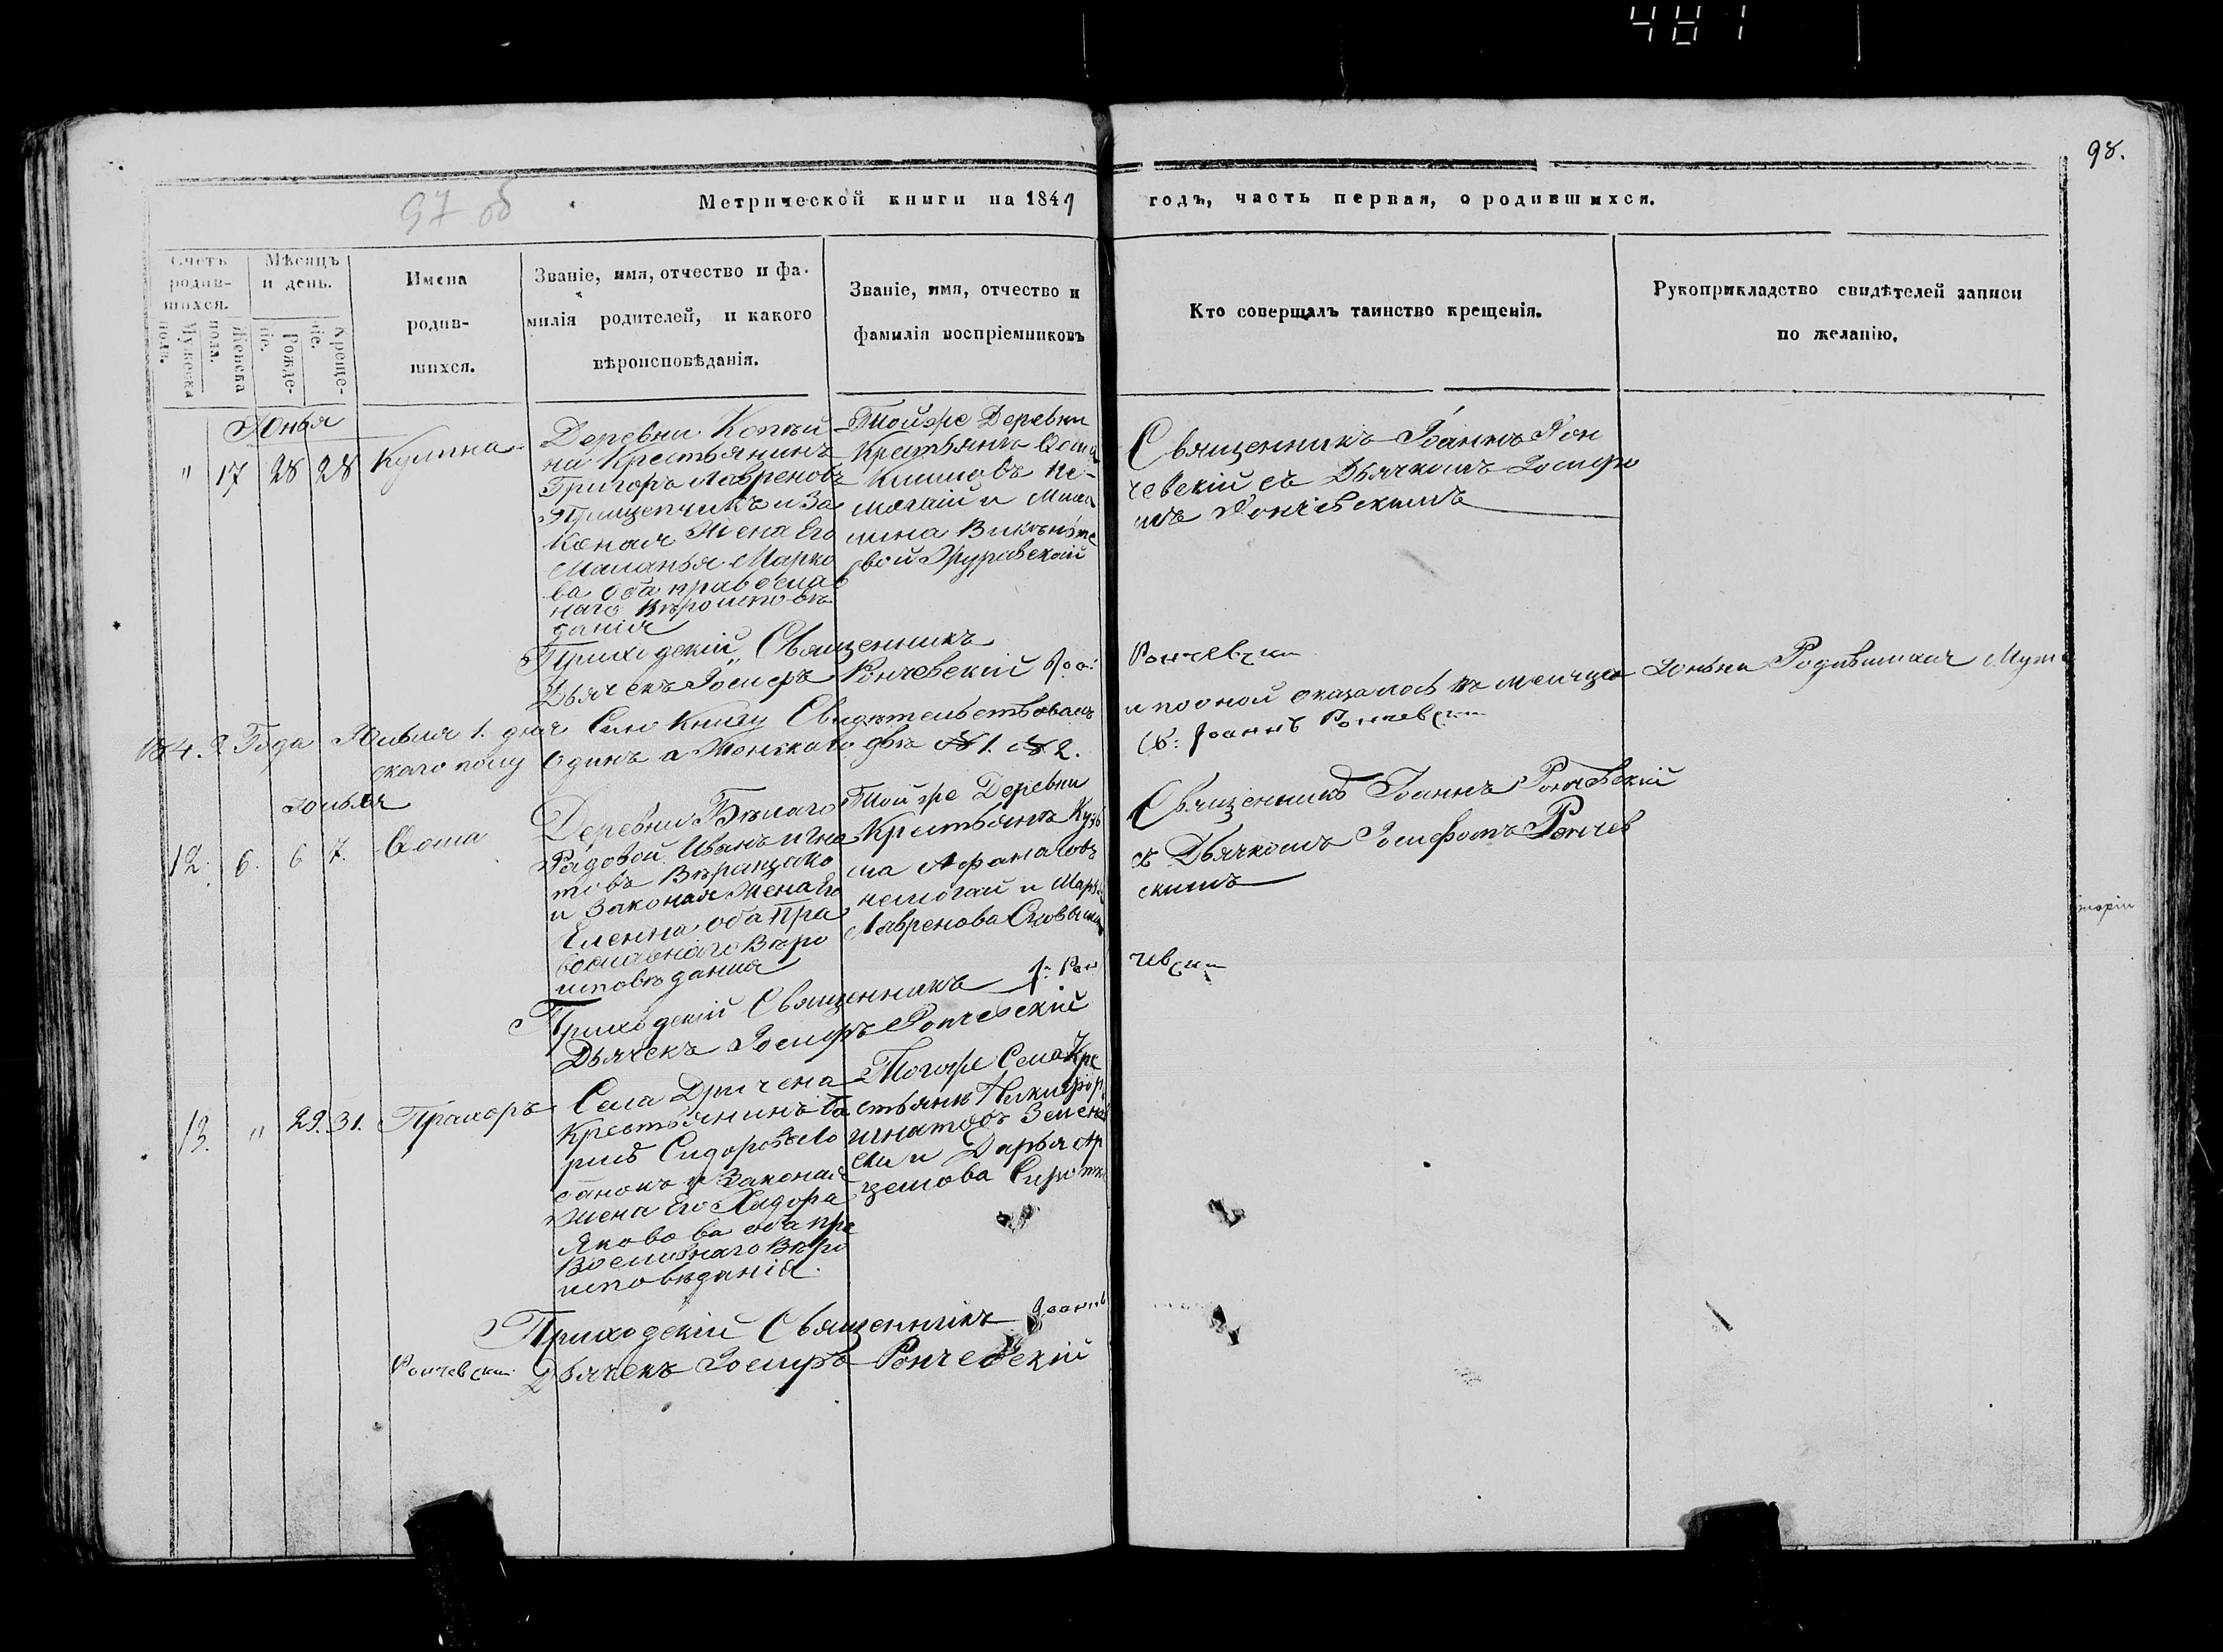 481
98.
97 об
Метрической книги на 1849 годъ, часть первая, о родившихся.
Счетъ родив-шихся.
Мужеска пола.
Женска пола.
Мѣсяцъ и день.
Рожде-ніе.
Креще-ніе.
Имена
родив-
шихся.
Званіе, имя, отчество и фа-
милія родителей, и какого
вѣроисповѣданія.
Званіе, имя, отчество и
фамилія воспріемниковъ
Кто совершалъ таинство крещенія.
Рукоприкладство свидѣтелей записи
по желанію.
Юнья
" 17 28 28 Кулина
Деревни
на Крестьянинъ
Григоръ Лавреновъ
Прищепчикъ и За
коная Жена Его
Маланья Марко
ва оба православ
наго Вѣроисповѣ
данія
Тойже Деревни
Крестьянъ Ѳома
Климовъ Не-
могаій и
Журавской
Священникъ Іоаннъ Рон
чевскій съ Дьячкомъ Іосифо
мъ Рончевскимъ
Приходскій Священникъ
Дьячекъ Іосифъ Рончевскій
Рончевски
184 Года Юлья 1. дня Сию Книгу Свидетельствовалъ и по оной оказалось въ месяце Юньи Родившихся Муж
скаго полу Одинъ а Женскаго двѣ №1. №2.
Св: Іоаннъ Рончевски
Юлья
12. 6. 6 7. Ѳома
Деревни Бѣлаго
Рядовой Иванъ Игна
товъ
и Законая Жена Его
Еленна оба Пра
вославнаго Вѣро
исповѣдания
Тойже Деревни
Крестьянъ Кузь
ма
немогай и Марья
Лавренова
Священникъ Іоаннъ Рончевскій
съ Дьячкомъ Іосифомъ Рончев
скимъ
Приходскій Священникъ І: Рон
чевски
Дьячекъ Іосифъ Рончевскій
13. " 29. 31. Прахоръ
Села Дричена
Крестьянинъ Ба
рисъ Сидоровъ Ло
банокъ и Законая
Жена Его Хадора
Якова ва оба пра
вославнаго Вѣро
исповѣданія.
Тогоже Села Кре
стьянъ Никифоръ
Игнатовъ
и Дарья Ар
темова
Приходскій Священникъ Іоаннъ
Рончевски
Дьячекъ Іосифъ Рончевскій